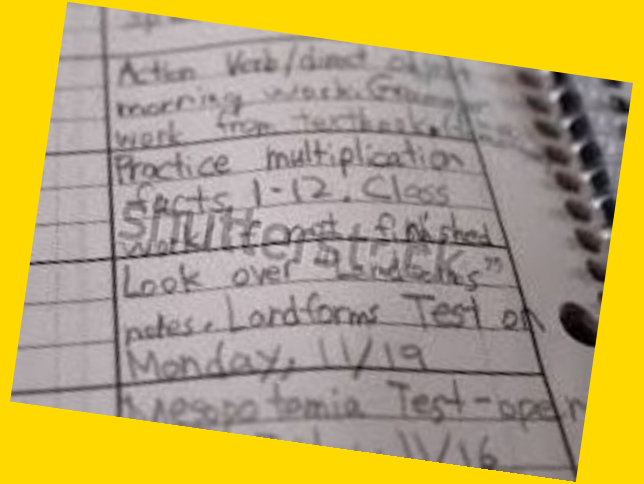 Action Verb/direct object
morning work. Grammar
work from textbook.
Practice multiplication
facts 1-12. Class
work if not finished
Look over "Landforms"
notes. Landforms Test on
Monday, 11/19
Mesopotamia Test-open
11/16
shutterstock